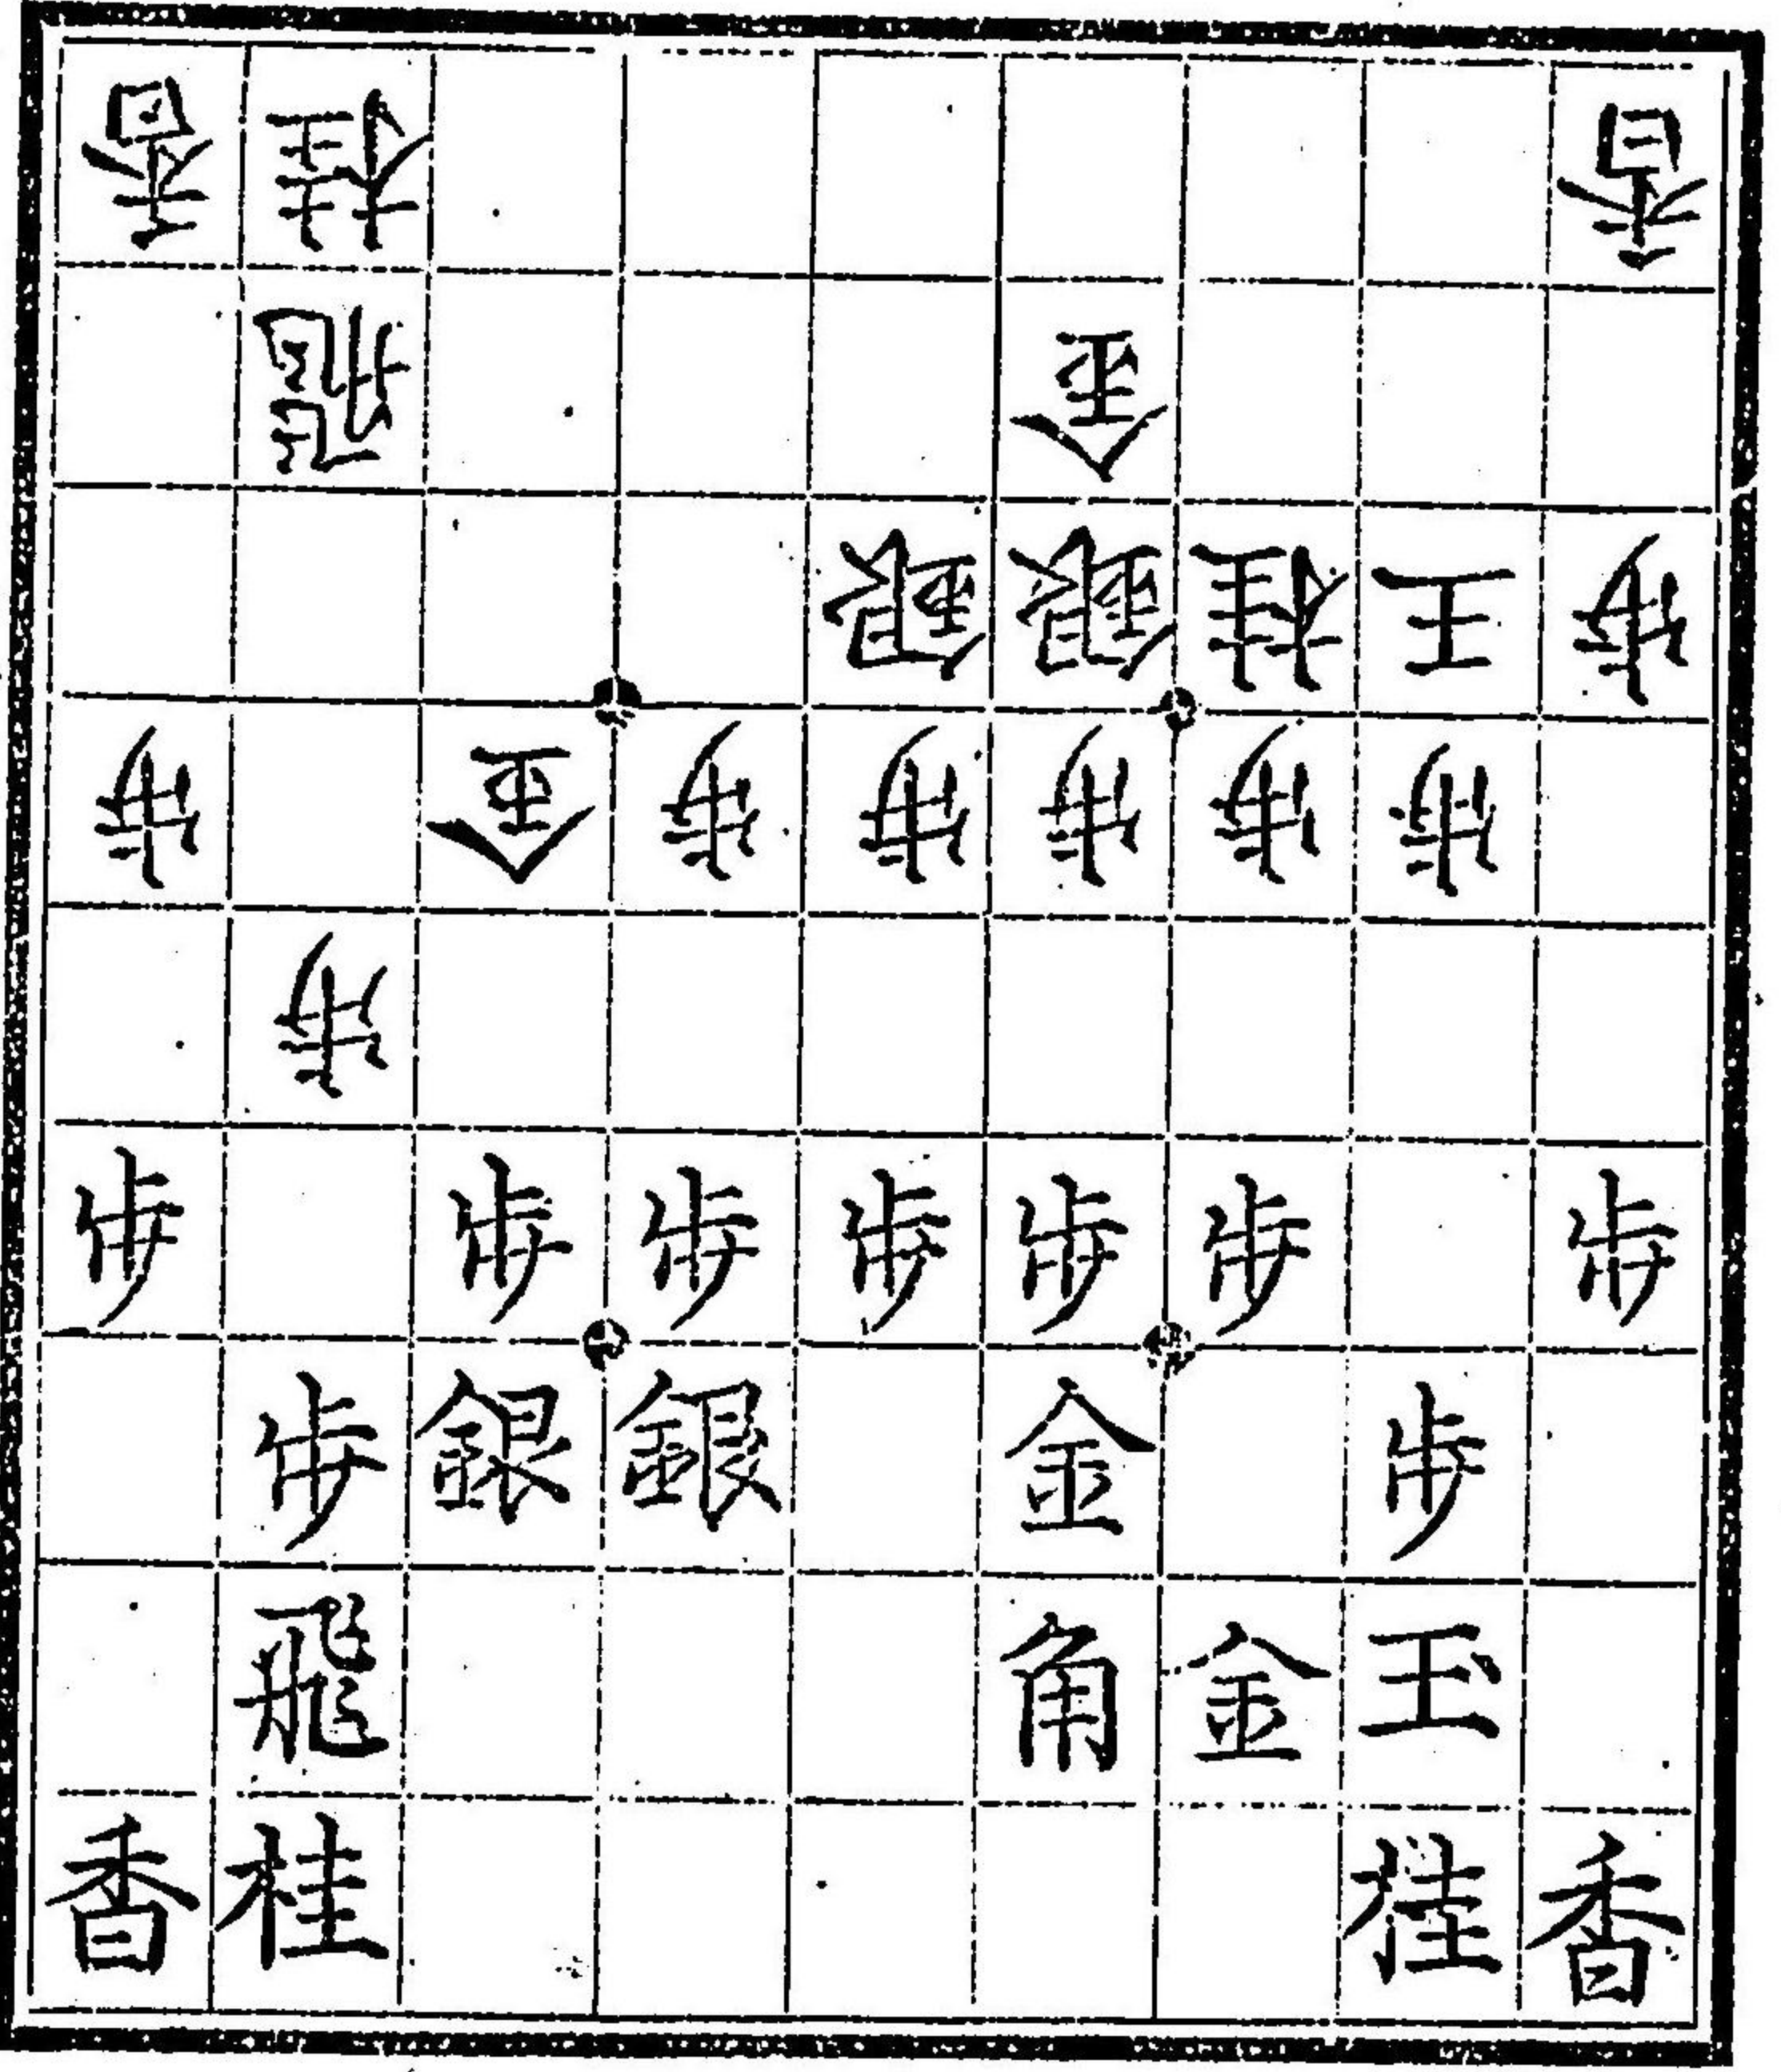 香 桂 香
飛 金
銀 銀 桂 王 歩
歩 金 歩 歩 歩 歩 歩
歩
歩 歩 歩 歩 歩 歩 歩
歩 銀 銀 金 歩
飛 角 金 玉
香 桂 桂 香